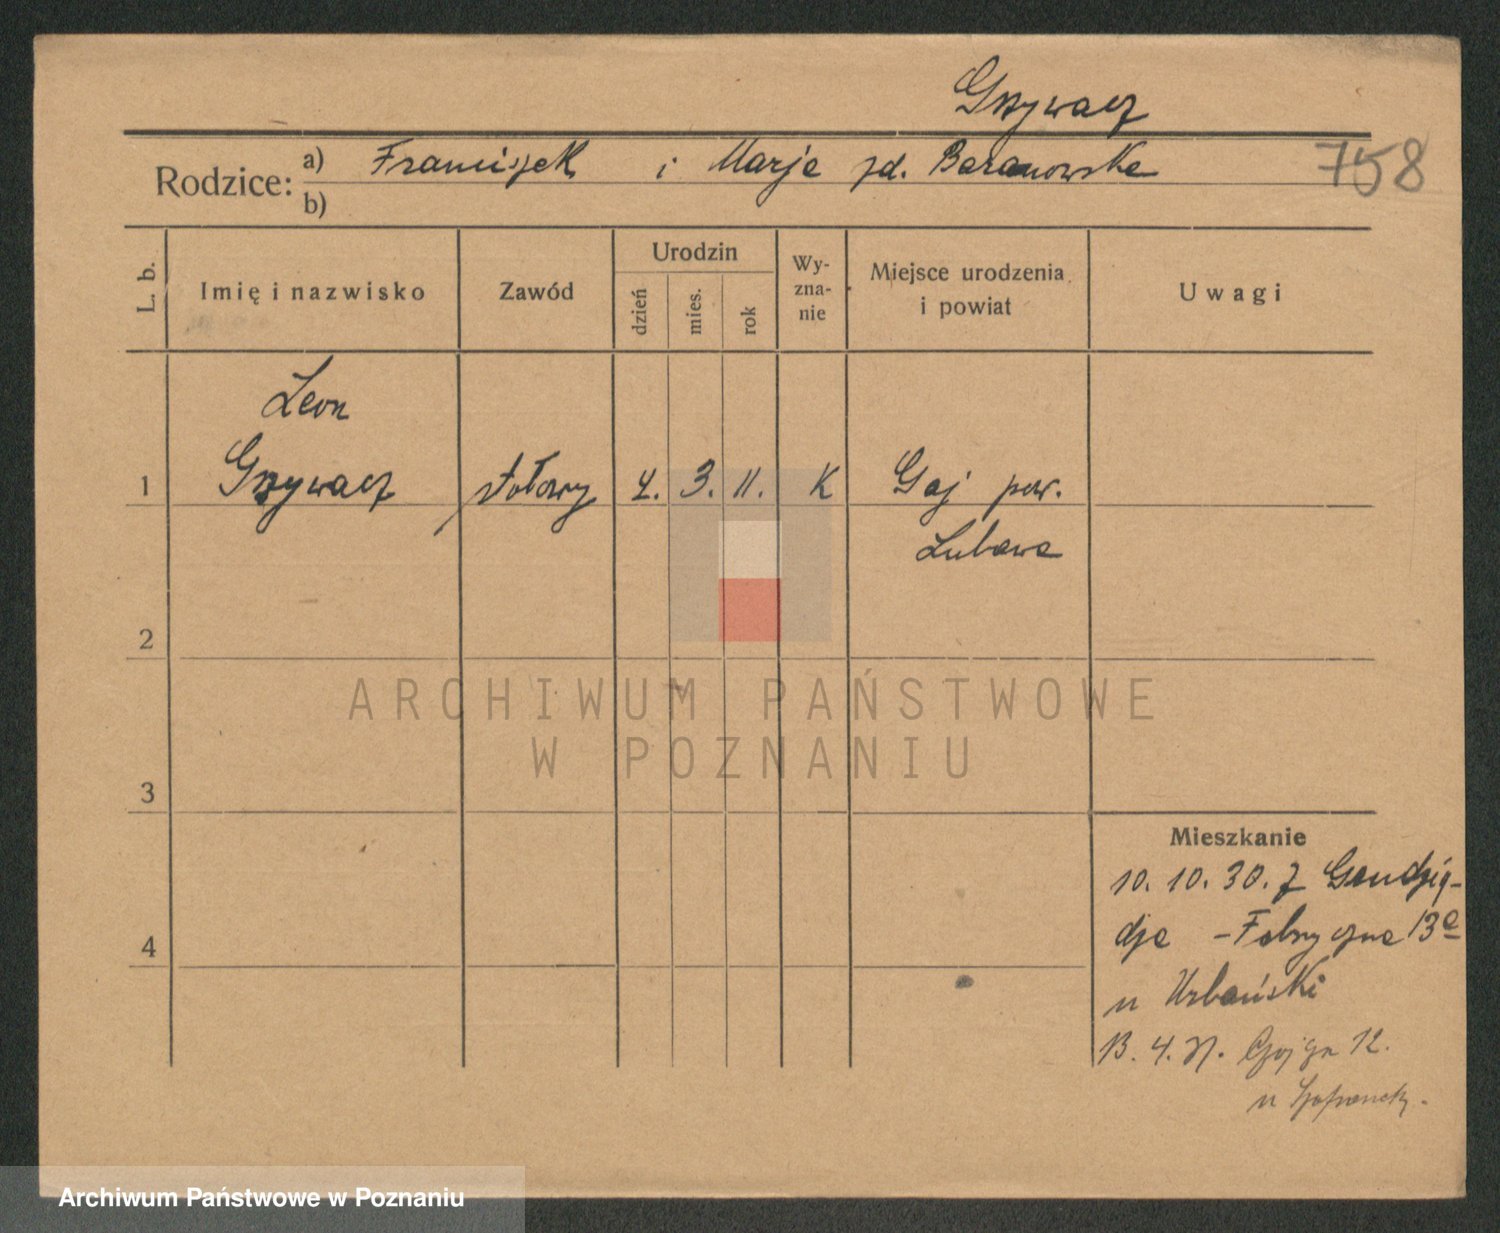 Grzywacz
758
Rodzice: a) Franciszek i Marja zd. Baranowska
b)
L. b. Imię i nazwisko Zawód Urodzin dzień mies. rok Wyznanie Miejsce urodzenia i powiat Uwagi
Leon
1 Grzywacz stołowy 4. 3. 11. K Gaj pow.
Lubawa
2
ARCHIWUM PAŃSTWOWE
W POZNANIU
3
Mieszkanie
10. 10. 30. z Grudzią-
4 dza - Fabryczna 13a
u Urbański
13. 4. 31. 12.
u
Archiwum Państwowe w Poznaniu